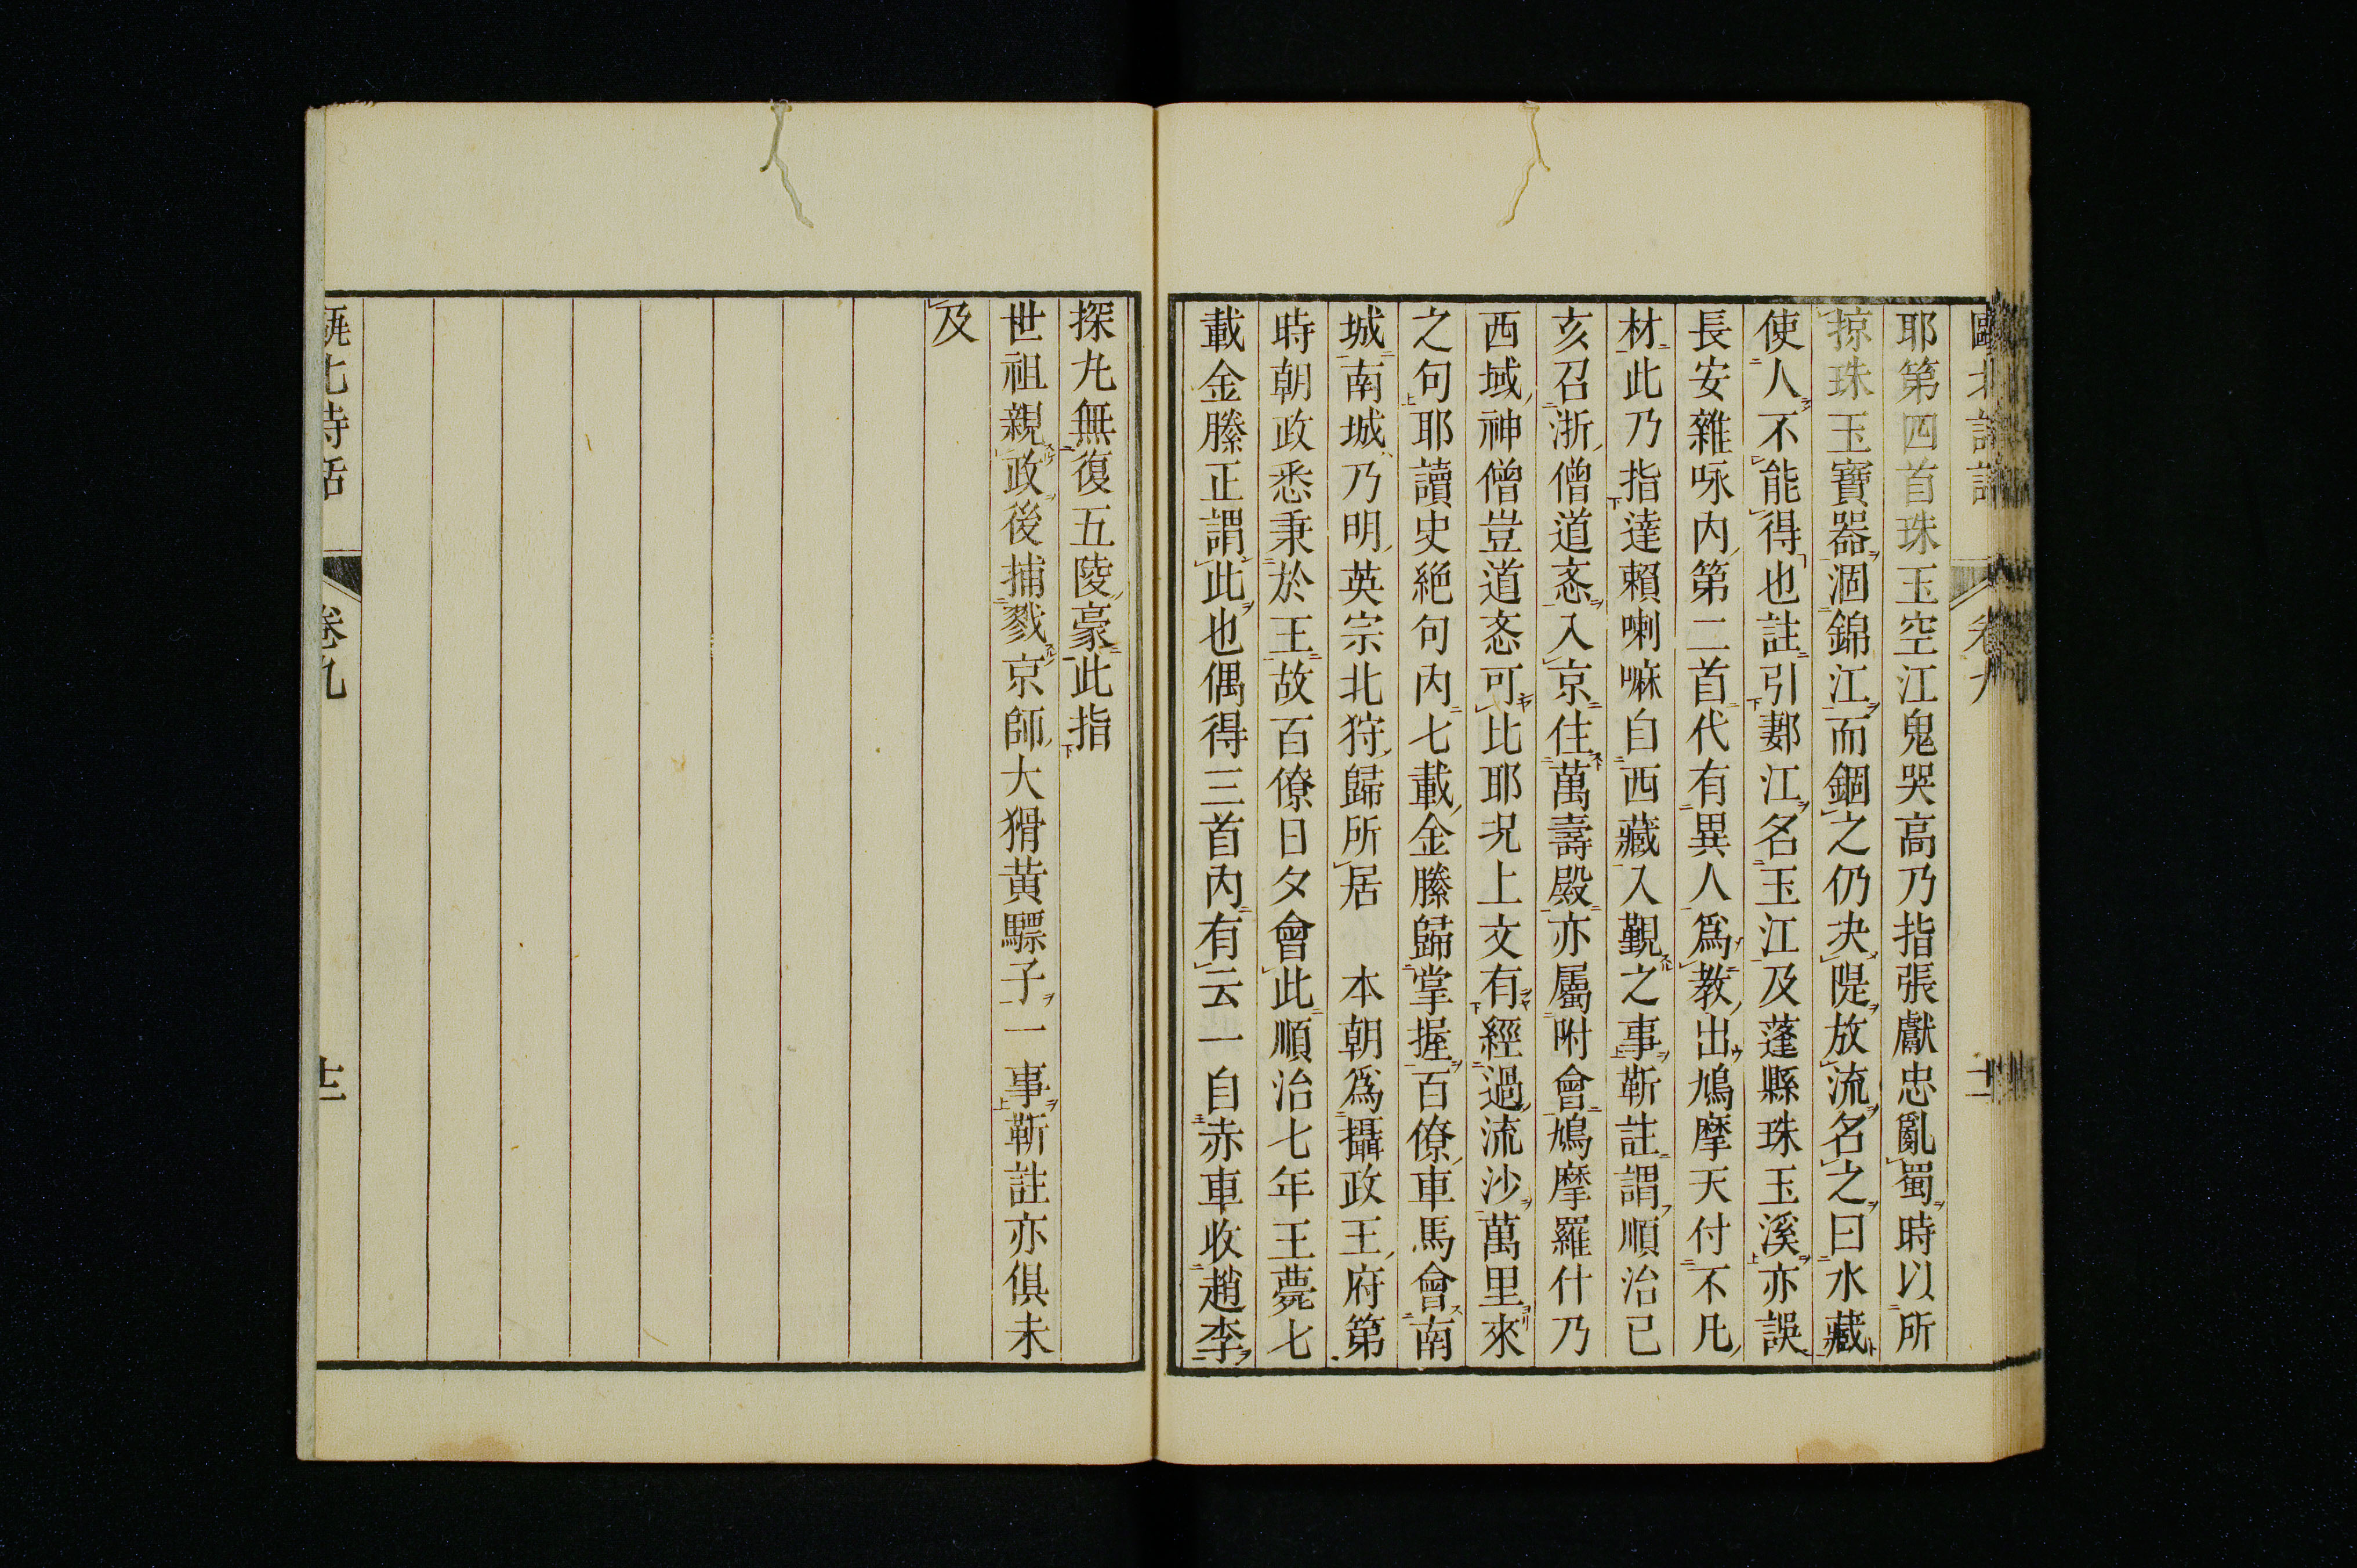 耶第四首珠玉空江鬼哭高乃指張獻忠亂蜀時以所
掠珠玉寶器涸錦江而錮之仍决隄放流名之曰水藏
使人不能得也註引鄴江名玉江及蓬縣珠玉溪亦誤
長安雜咏內第二首代有異人爲教出鳩摩天付不凡
材此乃指達賴喇嘛自西藏入覲之事靳註謂順治已
亥召浙僧道忞入京住萬壽殿亦屬附會鳩摩羅什乃
西域神僧豈道忞可比耶况上文有經過流沙萬里來
之句耶讀史絕句內七載金縢歸掌握百僚車馬會南
城南城乃明英宗北狩歸所居　本朝爲攝政王府第
時朝政悉秉於王故百僚日夕會此順治七年王薨七
載金縢正謂此也偶得三首內有云一自赤車收趙李
探丸無復五陵豪此指
世祖親政後捕戮京師大猾黃驃子一事靳註亦俱未
及
甌北詩話　卷九　十二